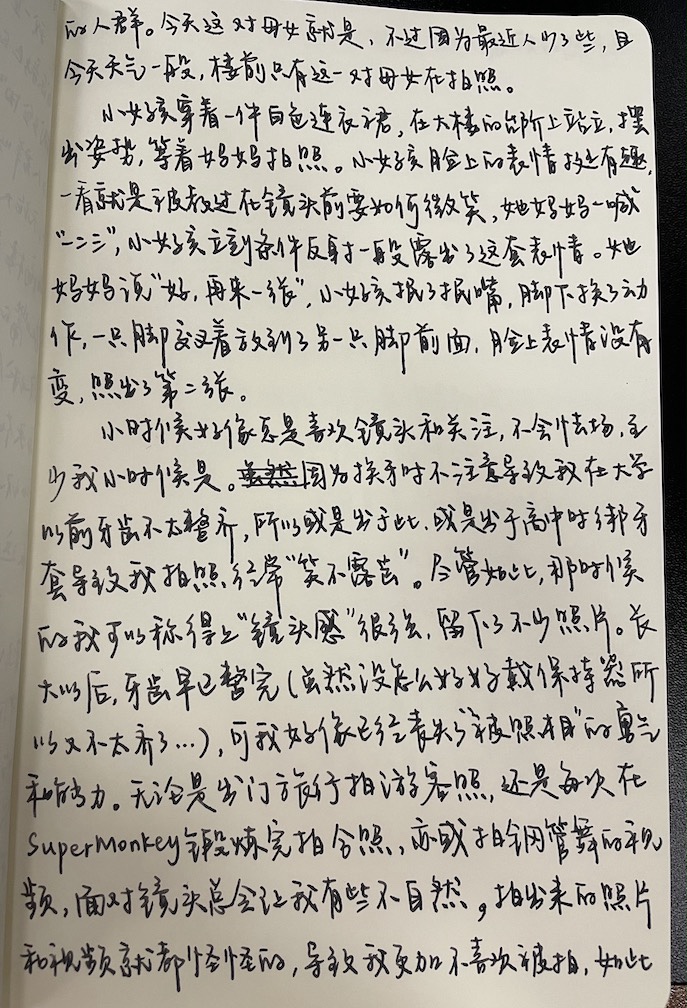 的人群。今天这对母女就是，不过因为最近人少了些，且
今天天气一般，楼前只有这一对母女在拍照。
小女孩穿着一件白色连衣裙，在大楼的台阶上站立，摆
出姿势，等着妈妈拍照。小女孩脸上的表情挺有趣，
一看就是被教过在镜头前要如何微笑，她妈妈一喊
“一二三”，小女孩立刻条件反射一般露出了这套表情。她
妈妈说“好，再来一张”，小女孩抿了抿嘴，脚下换了动
作，一只脚交叉着放到了另一只脚前面，脸上表情没有
变，照出了第二张。
小时候好像总是喜欢镜头和关注，不会怯场，至
少我小时候是。虽然因为换牙时不注意导致我在大学
以前牙齿不太整齐，所以或是出于此，或是出于高中时绑牙
套导致我拍照经常“笑不露齿”。尽管如此，那时候
的我可以称得上“镜头感”很强，留下了不少照片。长
大以后，牙齿早已整完（虽然没怎么好好戴保持器所
以又不太齐了…），可我好像已经丧失了“被照相”的勇气
和能力。无论是出门旅行拍游客照，还是每次在
SuperMonkey锻炼完拍合照，亦或拍钢管舞的视
频，面对镜头总会让我有些不自然，拍出来的照片
和视频就都怪怪的，导致我更加不喜欢被拍，如此